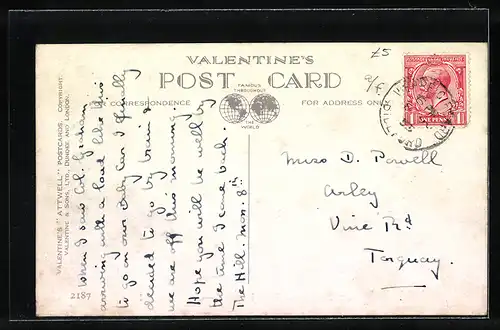 £5
a/f
VALENTINE'S
POST CARD
FAMOUS
THROUGHOUT
THE
WORLD
FOR CORRESPONDENCE
FOR ADDRESS ONLY
ONE PENNY
VALENTINE'S "ATTWELL" POSTCARDS, COPYRIGHT.
VALENTINE & SONS, LTD., DUNDEE AND LONDON.
2187
When I saw Col. Graham
arriving with a load like this
to go on our only car I finally
decided to go by train &
we are off this morning.
Hope you will be well by
the time I come back.
The Hill. Mon. 8th
Miss D. Powell
Arley
Vine Rd
Torquay.